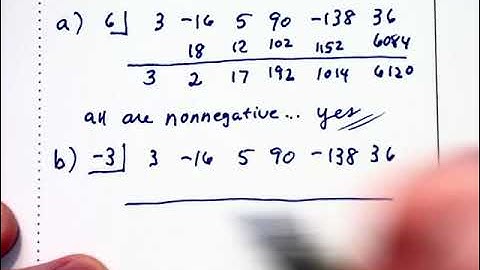 a) 6 3 -16 5 90 -138 36
18 12 102 1152 6084
3 2 17 192 1014 6120
all are nonnegative... yes
b) -3 3 -16 5 90 -138 36